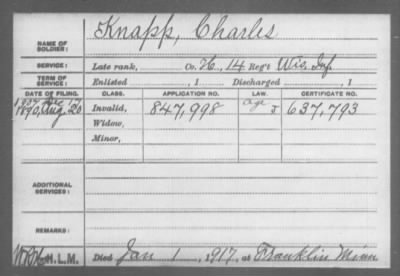 NAME OF SOLDIER: Knapp, Charles
SERVICE: Late rank, Co. H, 14 Reg't Wis. Inf.
TERM OF SERVICE: Enlisted , 1 Discharged , 1
DATE OF FILING. CLASS. APPLICATION NO. LAW. CERTIFICATE NO.
1907, Dec 17 Age
1890, Aug. 20 Invalid, 847,998 J 637,793
Widow,
Minor,
ADDITIONAL SERVICES:
REMARKS:
H.L.M. Died Jan 1, 1917, at Franklin Minn